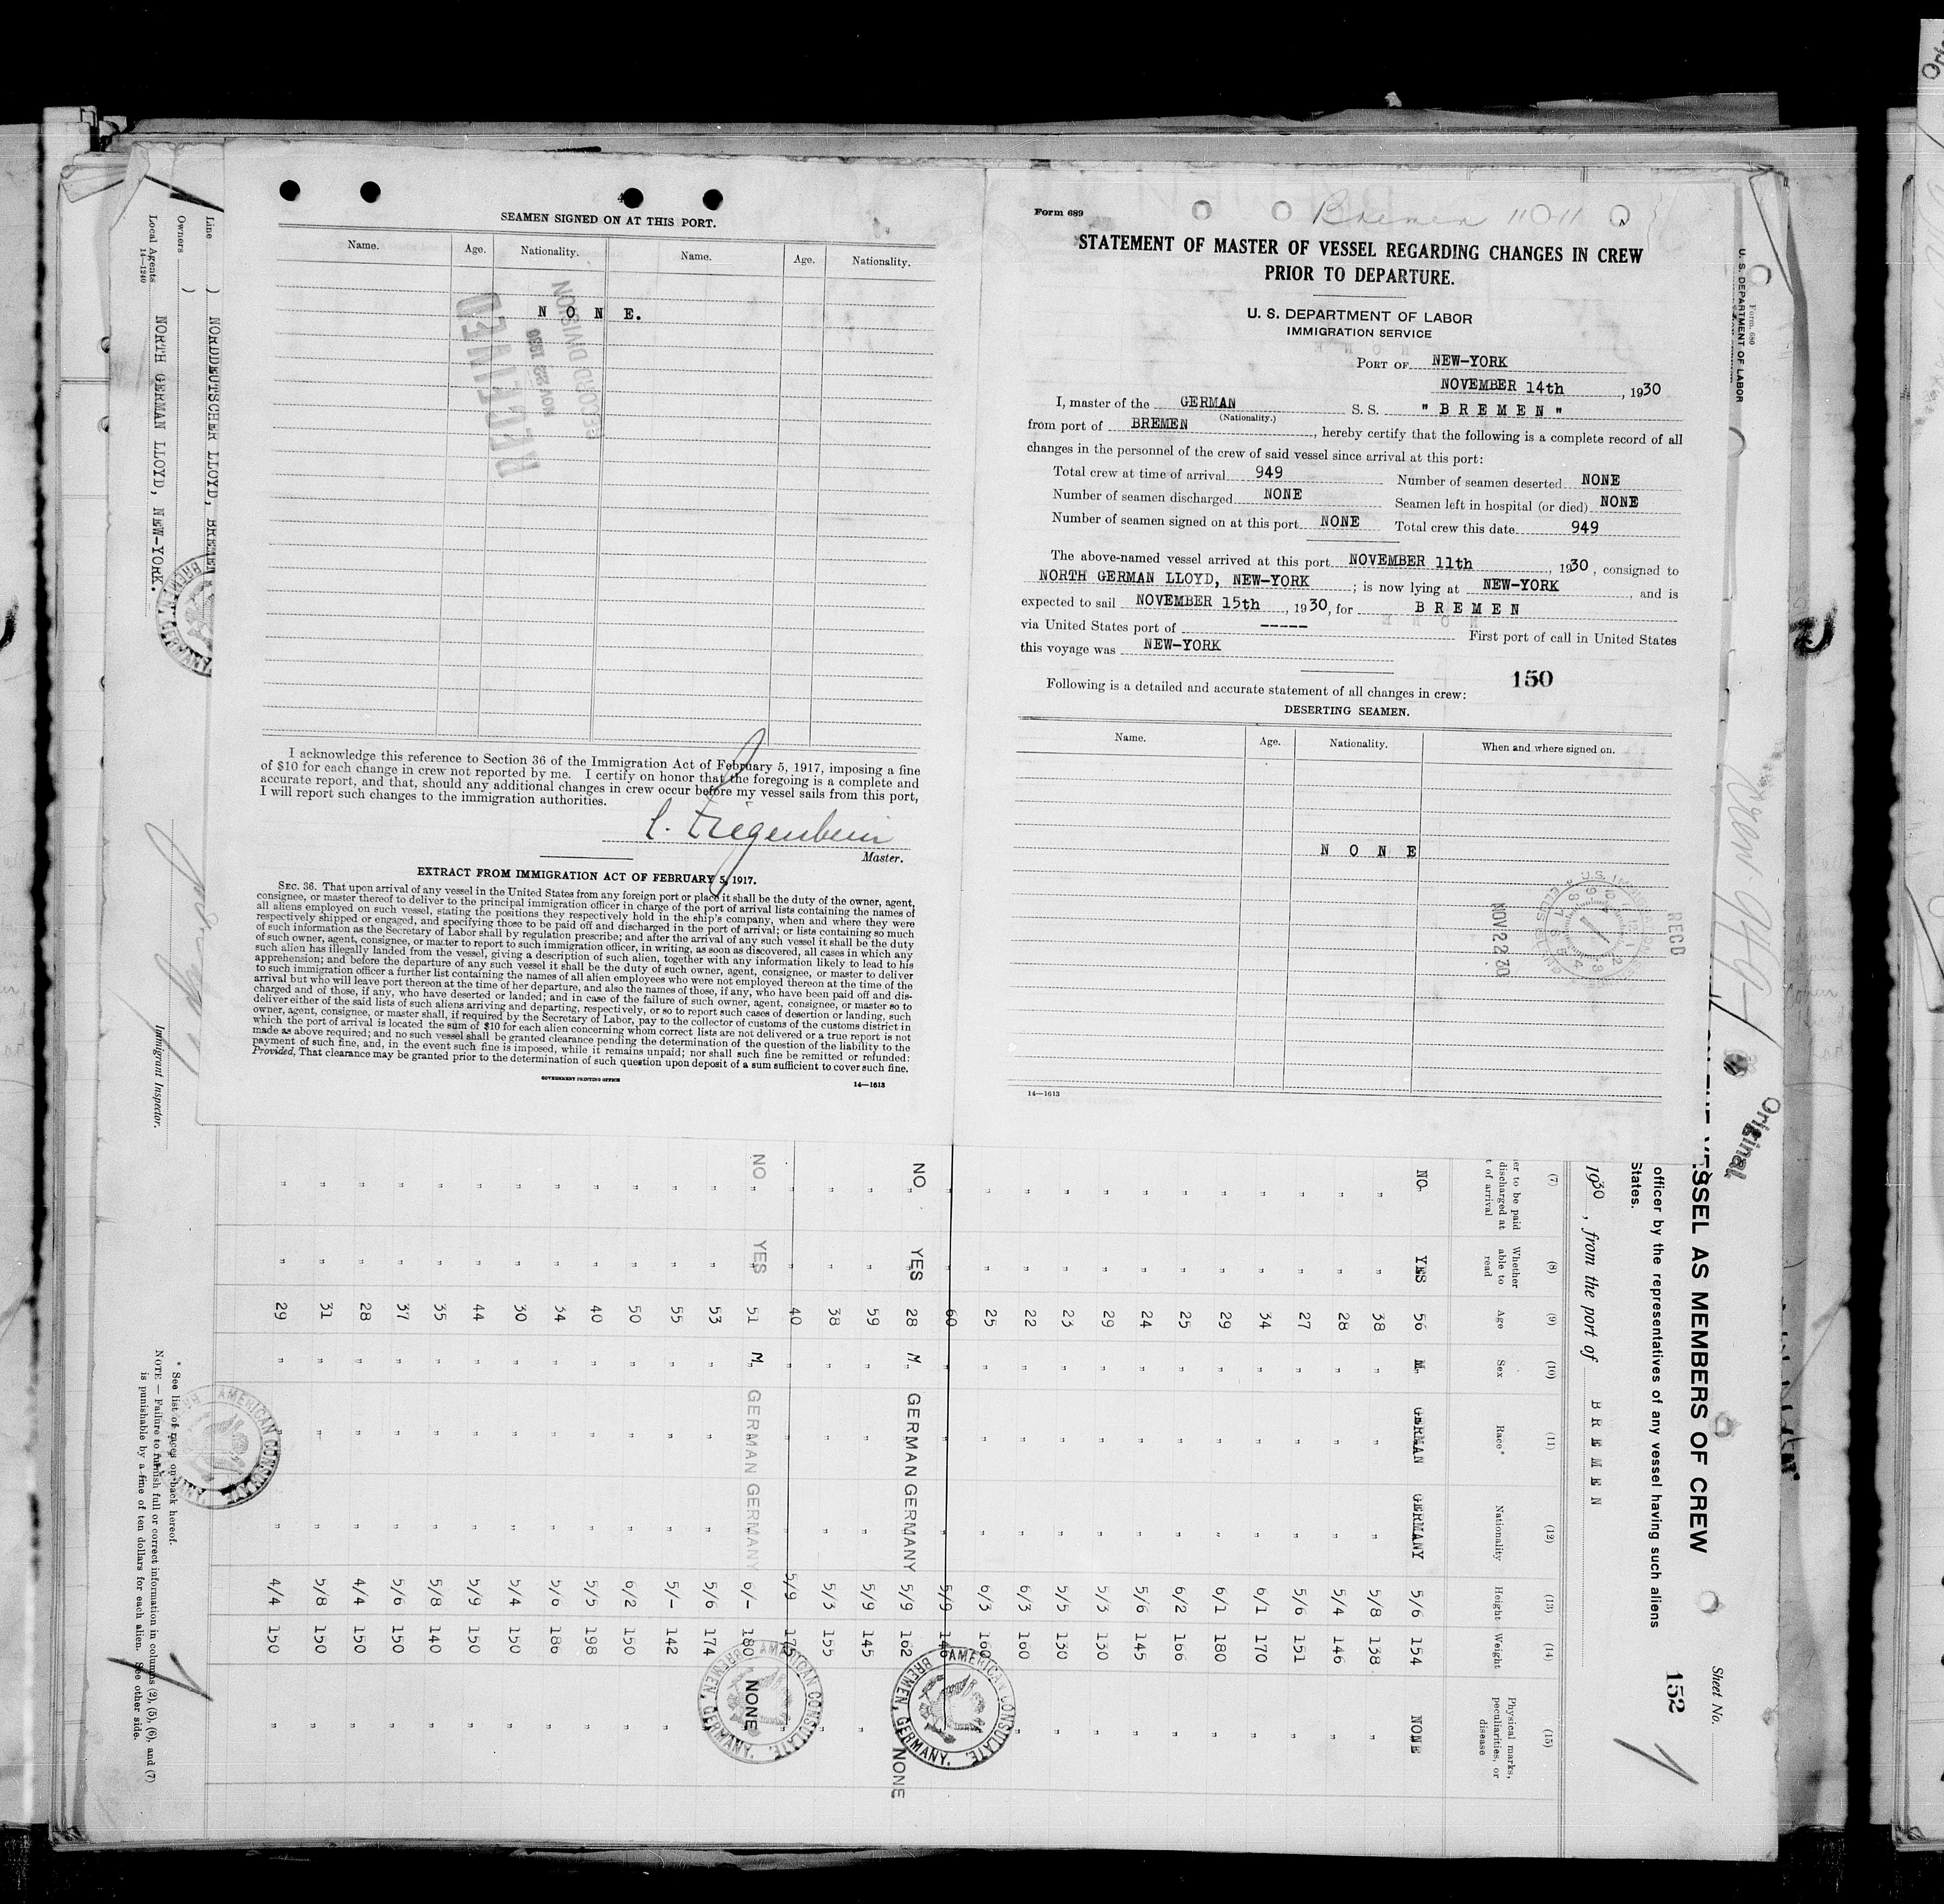 SEAMEN SIGNED ON AT THIS PORT.
Name. Age. Nationality. Name. Age. Nationality.
N O N E.
RECEIVED
NOV 22 1930
RECORD DIVISION
I acknowledge this reference to Section 36 of the Immigration Act of February 5, 1917, imposing a fine
of $10 for each change in crew not reported by me. I certify on honor that the foregoing is a complete and
accurate report, and that, should any additional changes in crew occur before my vessel sails from this port,
I will report such changes to the immigration authorities.
Master.
EXTRACT FROM IMMIGRATION ACT OF FEBRUARY 5, 1917.
SEC. 36. That upon arrival of any vessel in the United States from any foreign port or place it shall be the duty of the owner, agent,
consignee, or master thereof to deliver to the principal immigration officer in charge of the port of arrival lists containing the names of
all aliens employed on such vessel, stating the positions they respectively hold in the ship's company, when and where they were
respectively shipped or engaged, and specifying those to be paid off and discharged in the port of arrival; or lists containing so much
of such information as the Secretary of Labor shall by regulation prescribe; and after the arrival of any such vessel it shall be the duty
of such owner, agent, consignee, or master to report to such immigration officer, in writing, as soon as discovered, all cases in which any
such alien has illegally landed from the vessel, giving a description of such alien, together with any information likely to lead to his
apprehension; and before the departure of any such vessel it shall be the duty of such owner, agent, consignee, or master to deliver
to such immigration officer a further list containing the names of all alien employees who were not employed thereon at the time of the
arrival but who will leave port thereon at the time of her departure, and also the names of those, if any, who have been paid off and dis-
charged and of those, if any, who have deserted or landed; and in case of the failure of such owner, agent, consignee, or master so to
deliver either of the said lists of such aliens arriving and departing, respectively, or so to report such cases of desertion or landing, such
owner, agent, consignee, or master shall, if required by the Secretary of Labor, pay to the collector of customs of the customs district in
which the port of arrival is located the sum of $10 for each alien concerning whom correct lists are not delivered or a true report is not
made as above required; and no such vessel shall be granted clearance pending the determination of the question of the liability to the
payment of such fine, and, in the event such fine is imposed, while it remains unpaid; nor shall such fine be remitted or refunded:
Provided, That clearance may be granted prior to the determination of such question upon deposit of a sum sufficient to cover such fine.
GOVERNMENT PRINTING OFFICE 14—1613
Form 689
Bremen 11 11
STATEMENT OF MASTER OF VESSEL REGARDING CHANGES IN CREW
PRIOR TO DEPARTURE.
U. S. DEPARTMENT OF LABOR
IMMIGRATION SERVICE
PORT OF NEW-YORK
NOVEMBER 14th, 1930
I, master of the GERMAN S. S. " B R E M E N "
(Nationality.)
from port of BREMEN, hereby certify that the following is a complete record of all
changes in the personnel of the crew of said vessel since arrival at this port:
Total crew at time of arrival 949 Number of seamen deserted NONE
Number of seamen discharged NONE Seamen left in hospital (or died) NONE
Number of seamen signed on at this port NONE Total crew this date 949
The above-named vessel arrived at this port NOVEMBER 11th, 1930, consigned to
NORTH GERMAN LLOYD, NEW-YORK; is now lying at NEW-YORK, and is
expected to sail NOVEMBER 15th, 1930, for B R E M E N
via United States port of ----- First port of call in United States
this voyage was NEW-YORK
150
Following is a detailed and accurate statement of all changes in crew:
DESERTING SEAMEN.
Name. Age. Nationality. When and where signed on.
N O N E
NOV 22 30
REC'D
14—1613
Line ) NORDDEUTSCHER LLOYD, BREMEN
Owners )
Local Agents NORTH GERMAN LLOYD, NEW-YORK.
14—1240
Immigrant Inspector.
Form 680
U. S. DEPARTMENT OF LABOR
Original
SSEL AS MEMBERS OF CREW
Sheet No.
152
officer by the representatives of any vessel having such aliens
States.
1930, from the port of B R E M E N
(7) (8) (9) (10) (11) (12) (13) (14) (15)
er to be paid discharged at t of arrival
Whether able to read
Age
Sex
Race*
Nationality
Height
Weight
Physical marks, peculiarities, or disease
NO. YES 56 M. GERMAN GERMANY 5/6 154 NONE
" " 38 " " " 5/8 138 "
" " 28 " " " 5/4 146 "
" " 27 " " " 5/6 151 "
" " 34 " " " 6/1 170 "
" " 29 " " " 6/1 180 "
" " 25 " " " 6/2 166 "
" " 24 " " " 5/6 145 "
" " 29 " " " 5/3 130 "
" " 23 " " " 5/5 130 "
" " 22 " " " 6/3 160 "
" " 25 " " " 6/3 160
" " 60 " " " 5/9 146
NO YES 28 M. GERMAN GERMANY 5/9 162 NONE
" " 59 " " " 5/9 145 "
" " 38 " " " 5/3 155 "
" " 40 " " " 5/9 175 "
NO YES 51 M. GERMAN GERMANY 6/- 180 NONE
" " 53 " " " 5/6 174 "
" " 55 " " " 5/- 142 "
" " 50 " " " 6/2 150 "
" " 40 " " " 5/5 198 "
" " 34 " " " 5/6 186 "
" " 30 " " " 5/4 150 "
" " 44 " " " 5/9 150 "
" " 35 " " " 5/8 140 "
" " 37 " " " 5/6 150 "
" " 28 " " " 4/4 150 "
" " 31 " " " 5/8 150 "
" " 29 " " " 4/4 150 "
AMERICAN CONSULATE. BREMEN, GERMANY.
AMERICAN CONSULATE. BREMEN, GERMANY.
AMERICAN CONSULATE
BREMEN, GERMANY
* See list of races on back hereof.
NOTE — Failure to furnish full or correct information in columns (2), (5), (6), and (7)
is punishable by a fine of ten dollars for each alien. See other side.